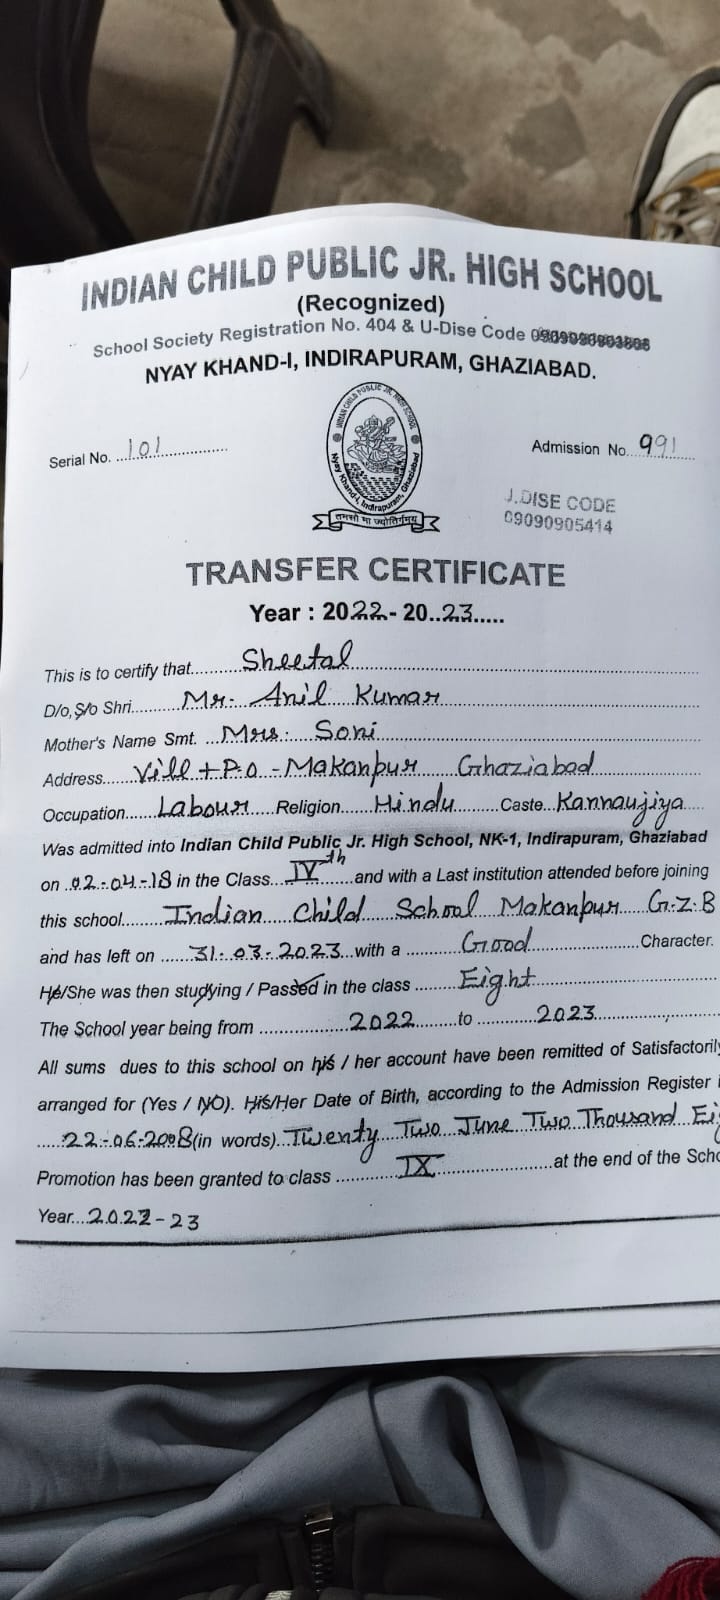 INDIAN CHILD PUBLIC JR. HIGH SCHOOL
(Recognized)
School Society Registration No. 404 & U-Dise Code
NYAY KHAND-I, INDIRAPURAM, GHAZIABAD.
INDIAN CHILD PUBLIC JR. HIGH SCHOOL
Nyay Khand-I, Indirapuram, Ghaziabad
तमसो मा ज्योतिर्गमय
Serial No. ...101..................
Admission No....991......
J.DISE CODE
09090905414
TRANSFER CERTIFICATE
Year : 2022- 20..23.....
This is to certify that.........Sheetal..........
D/o, S/o Shri..........Mr. Anil Kumar..........
Mother's Name Smt. ...Mrs. Soni..........
Address......Vill + P.O - Makanpur Ghaziabad..........
Occupation......Labour.....Religion......Hindu........Caste...Kannaujiya.....
Was admitted into Indian Child Public Jr. High School, NK-1, Indirapuram, Ghaziabad
on .02-04-18 in the Class...IVth.......and with a Last institution attended before joining
this school.........Indian Child School Makanpur G.Z.B
and has left on ......31-03-2023...with a ..........Good..................Character.
He/She was then studying / Passed in the class .......Eight..........
The School year being from ...............2022........to ..........2023..........
All sums dues to this school on his / her account have been remitted of Satisfactorily
arranged for (Yes / NO). His/Her Date of Birth, according to the Admission Register
.....22-06-2008(in words)..Twenty Two June Two Thousand
Promotion has been granted to class ..........IX....................at the end of the
Year...2022-23